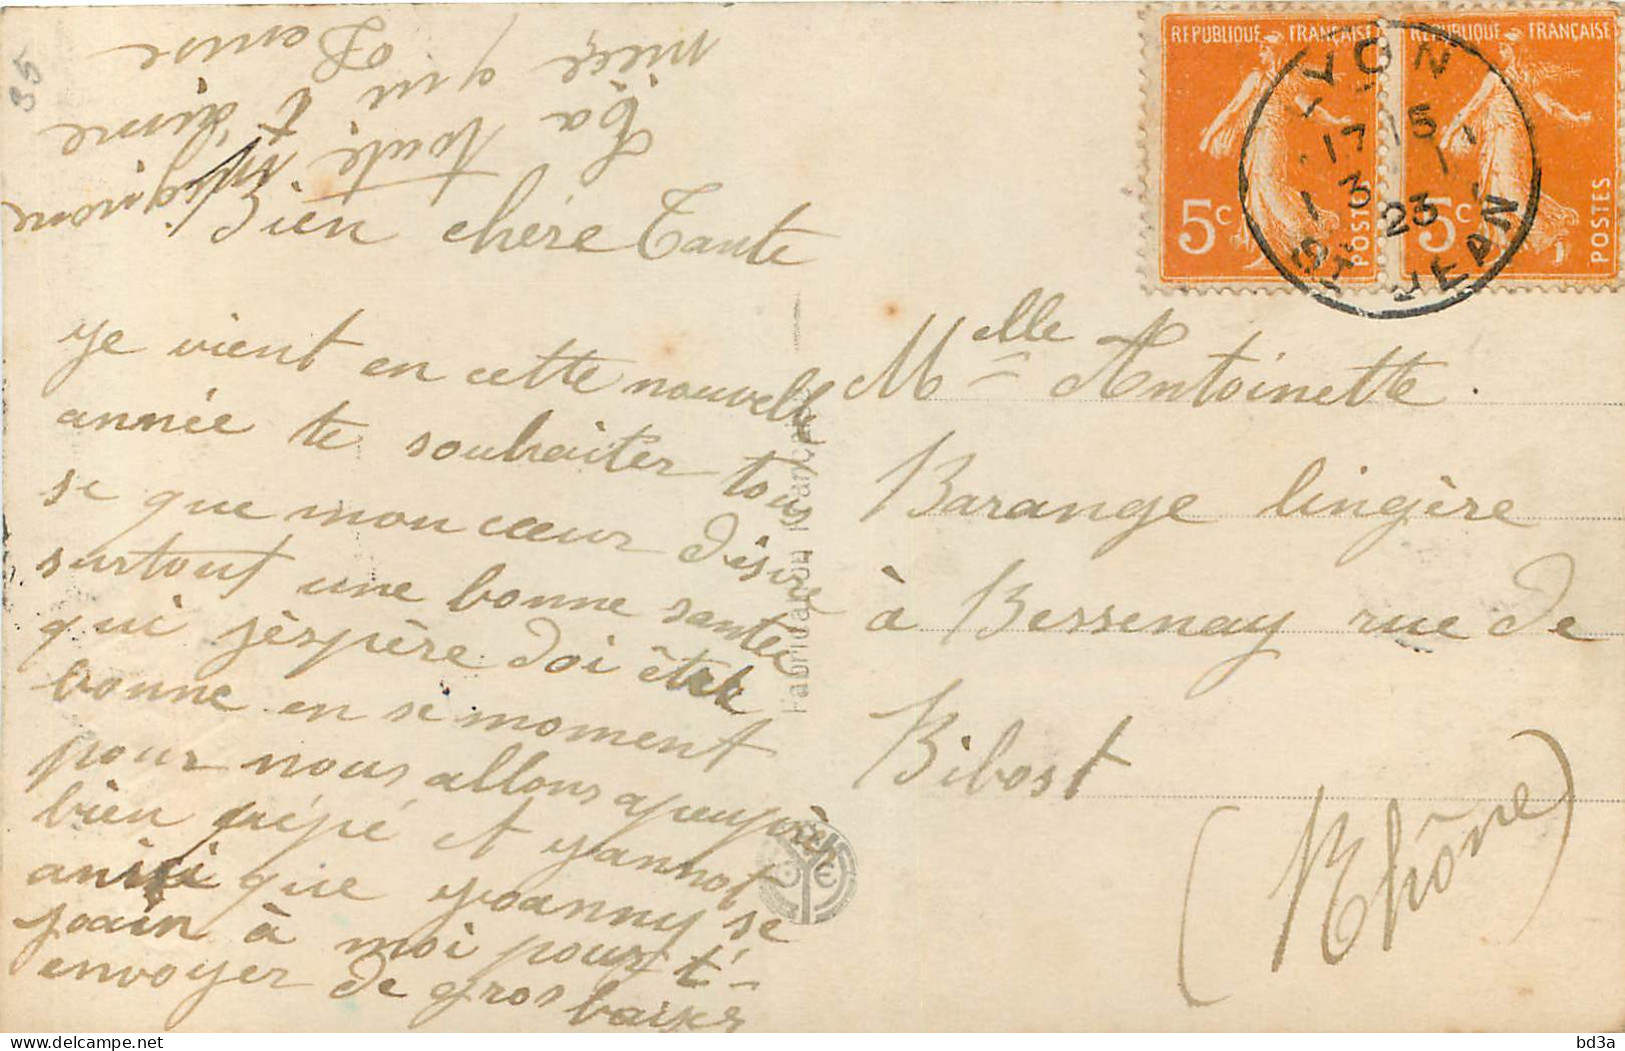 Bien chère Tante
je vient en cette nouvelle
année te souhaiter tous
se que mon cœur désire
surtout une bonne santée
qui j'éspère doi être
bonne en se moment
pour nous allons apeuprèn
bien pépé et yannot
anisi que yoanny se
join à moi pour t'-
envoyer de gros baiser
Ta
toute mignone
nièce qui t'aime
Louise
35
REPUBLIQUE FRANÇAISE
5c
POSTES
REPUBLIQUE FRANÇAISE
5c
POSTES
LYON
17 15
3 1
23
ST JEAN
Melle Antoinette.
Barange lingère
à Bessenay rue de
Bibost
(Rhône)
Fabrication Française
bd3a